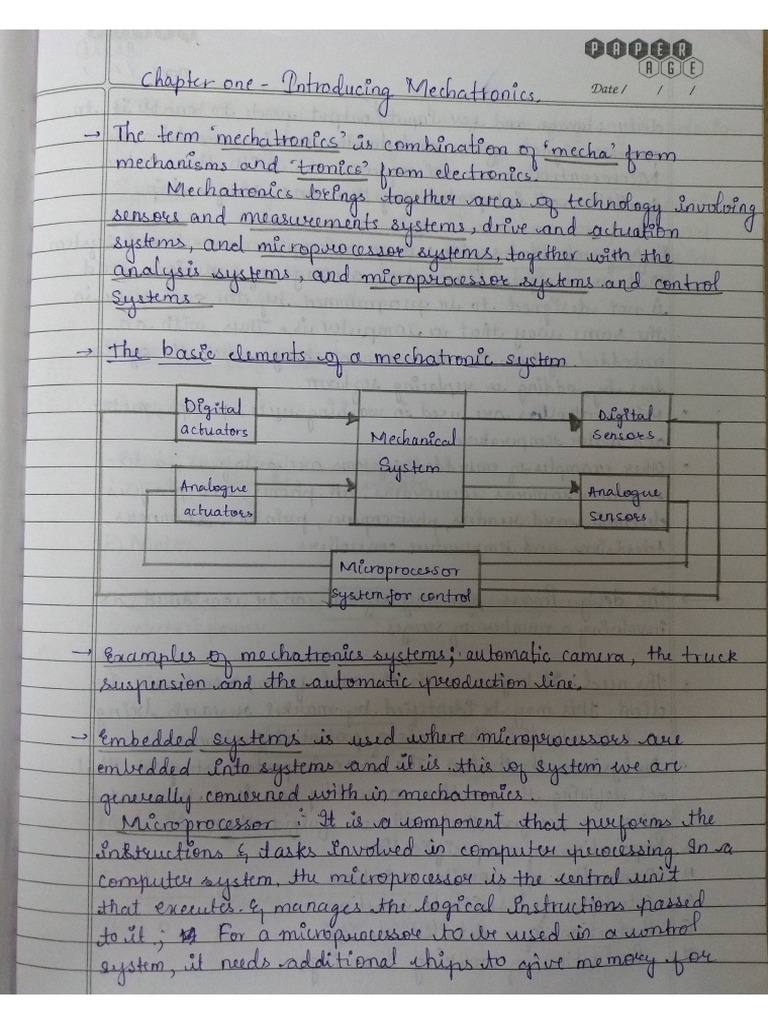 PAPER
AGE
Date / / /
Chapter one - Introducing Mechatronics.
→ The term 'mechatronics' is combination of 'mecha' from
mechanisms and 'tronics' from electronics.
Mechatronics brings together areas of technology involving
sensors and measurements systems, drive and actuation
systems, and microprocessor systems, together with the
analysis systems, and microprocessor systems and control
systems.
→ The basic elements of a mechatronic system.
Digital
actuators
Mechanical
System
Digital
sensors
Analogue
actuators
Analogue
sensors
Microprocessor
system for control
→ Examples of mechatronics systems; automatic camera, the truck
suspension and the automatic production line.
→ Embedded systems is used where microprocessors are
embedded into systems and it is this of system we are
generally concerned with in mechatronics.
Microprocessor :- It is a component that performs the
instructions & tasks involved in computer processing. In a
computer system, the microprocessor is the central unit
that executes & manages the logical instructions passed
to it.; For a microprocessor to be used in a control
system, it needs additional chips to give memory for